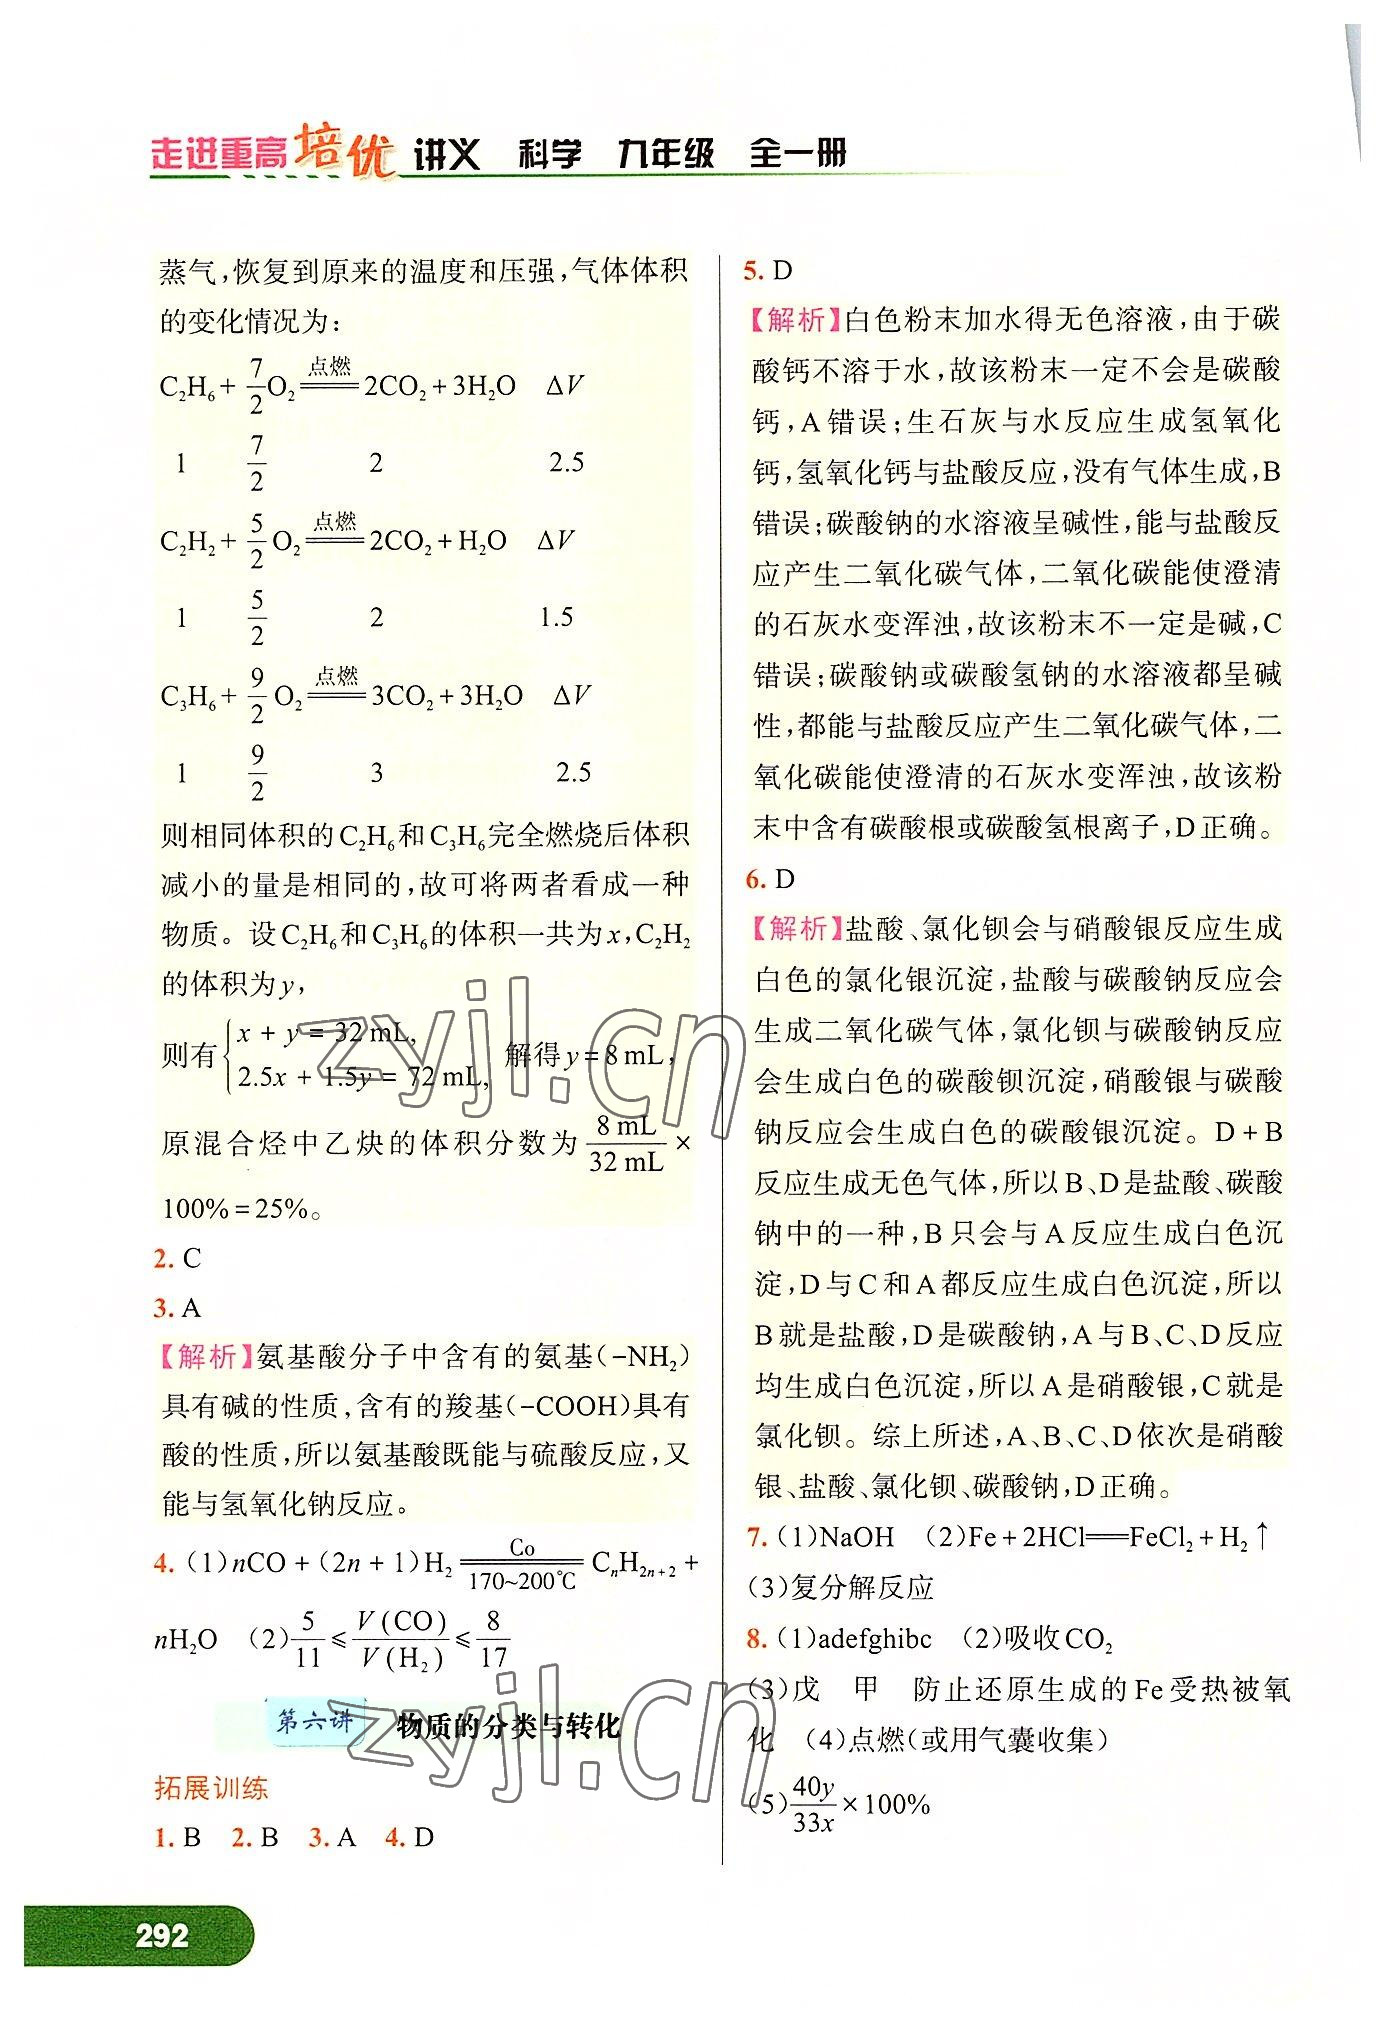 走进重高培优 讲义 科学 九年级 全一册
蒸气,恢复到原来的温度和压强,气体体积
的变化情况为:
C₂H₆ + 7/2 O₂ ══点燃══ 2CO₂ + 3H₂O ΔV
1 7/2 2 2.5
C₂H₂ + 5/2 O₂ ══点燃══ 2CO₂ + H₂O ΔV
1 5/2 2 1.5
C₃H₆ + 9/2 O₂ ══点燃══ 3CO₂ + 3H₂O ΔV
1 9/2 3 2.5
则相同体积的C₂H₆和C₃H₆完全燃烧后体积
减小的量是相同的,故可将两者看成一种
物质。设C₂H₆和C₃H₆的体积一共为x,C₂H₂
的体积为y,
则有{x + y = 32 mL, 2.5x + 1.5y = 72 mL, 解得y = 8 mL,
原混合烃中乙炔的体积分数为 8 mL/32 mL ×
100% = 25%。
2. C
3. A
【解析】氨基酸分子中含有的氨基(-NH₂)
具有碱的性质,含有的羧基(-COOH)具有
酸的性质,所以氨基酸既能与硫酸反应,又
能与氢氧化钠反应。
4. (1)nCO + (2n + 1)H₂ ══Co 170~200℃══ CₙH₂ₙ₊₂ +
nH₂O (2) 5/11 ≤ V(CO)/V(H₂) ≤ 8/17
第六讲 物质的分类与转化
拓展训练
1. B 2. B 3. A 4. D
5. D
【解析】白色粉末加水得无色溶液,由于碳
酸钙不溶于水,故该粉末一定不会是碳酸
钙,A错误;生石灰与水反应生成氢氧化
钙,氢氧化钙与盐酸反应,没有气体生成,B
错误;碳酸钠的水溶液呈碱性,能与盐酸反
应产生二氧化碳气体,二氧化碳能使澄清
的石灰水变浑浊,故该粉末不一定是碱,C
错误;碳酸钠或碳酸氢钠的水溶液都呈碱
性,都能与盐酸反应产生二氧化碳气体,二
氧化碳能使澄清的石灰水变浑浊,故该粉
末中含有碳酸根或碳酸氢根离子,D正确。
6. D
【解析】盐酸、氯化钡会与硝酸银反应生成
白色的氯化银沉淀,盐酸与碳酸钠反应会
生成二氧化碳气体,氯化钡与碳酸钠反应
会生成白色的碳酸钡沉淀,硝酸银与碳酸
钠反应会生成白色的碳酸银沉淀。D + B
反应生成无色气体,所以B、D是盐酸、碳酸
钠中的一种,B只会与A反应生成白色沉
淀,D与C和A都反应生成白色沉淀,所以
B就是盐酸,D是碳酸钠,A与B、C、D反应
均生成白色沉淀,所以A是硝酸银,C就是
氯化钡。综上所述,A、B、C、D依次是硝酸
银、盐酸、氯化钡、碳酸钠,D正确。
7. (1)NaOH (2)Fe + 2HCl══FeCl₂ + H₂↑
(3)复分解反应
8. (1)adefghibc (2)吸收CO₂
(3)戊 甲 防止还原生成的Fe受热被氧
化 (4)点燃(或用气囊收集)
(5) 40y/33x × 100%
292
zyjl.cn
zyjl.cn